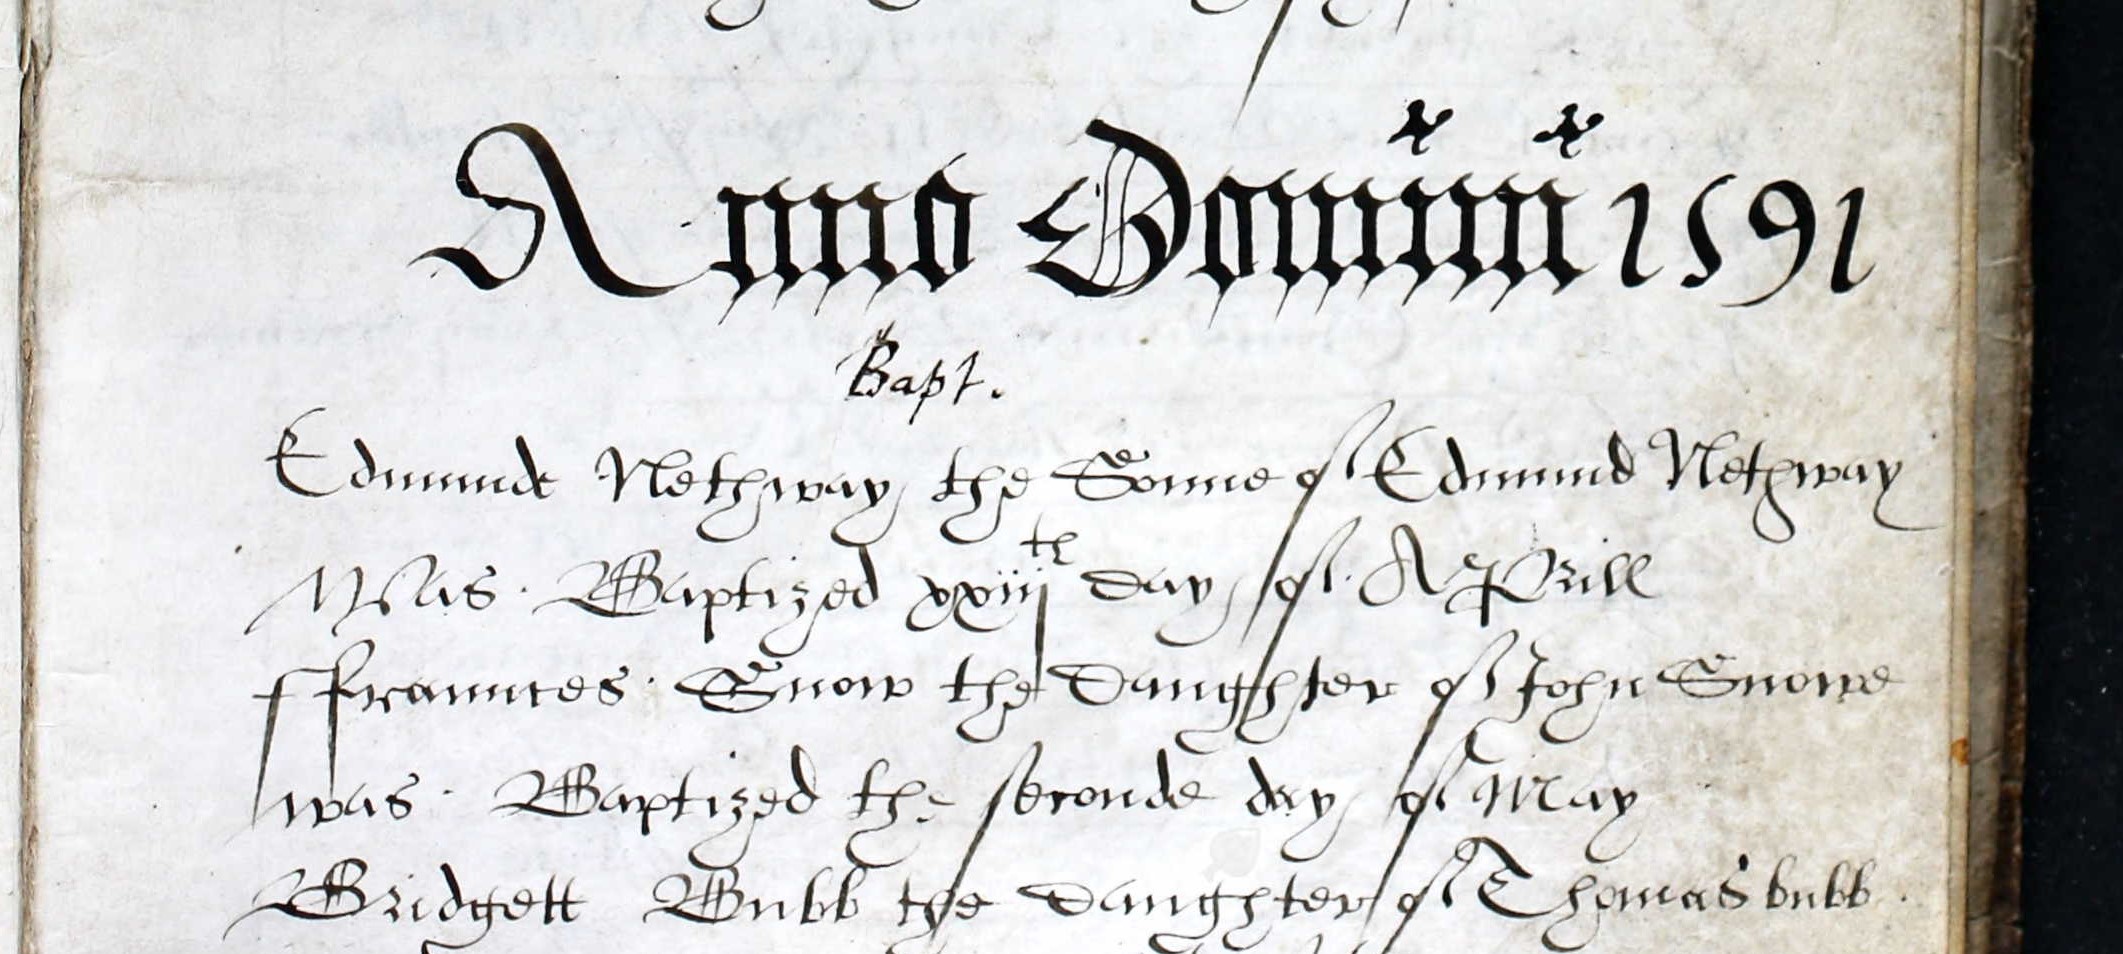 Anno Domini 1591
Bapt.
Edmunde Nethway the Sonne of Edmund Nethway
Was Baptized xxiij th day of APrill
ffraunces Snow the Daughter of John Snowe
was Baptized the seconde day of May
Bridgett Bubb the Daughter of Thomas bubb